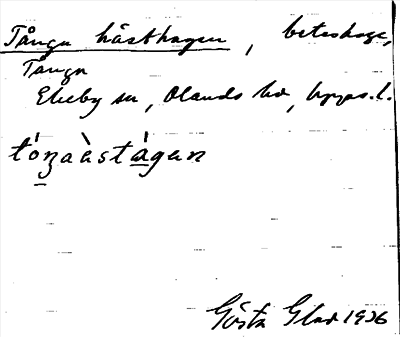 Tånga hästhagen, beteshage,
Tånga
Ekeby sn, Olands hd, Upps. l.
tóŋaàstàgan
Gösta Glad 1936